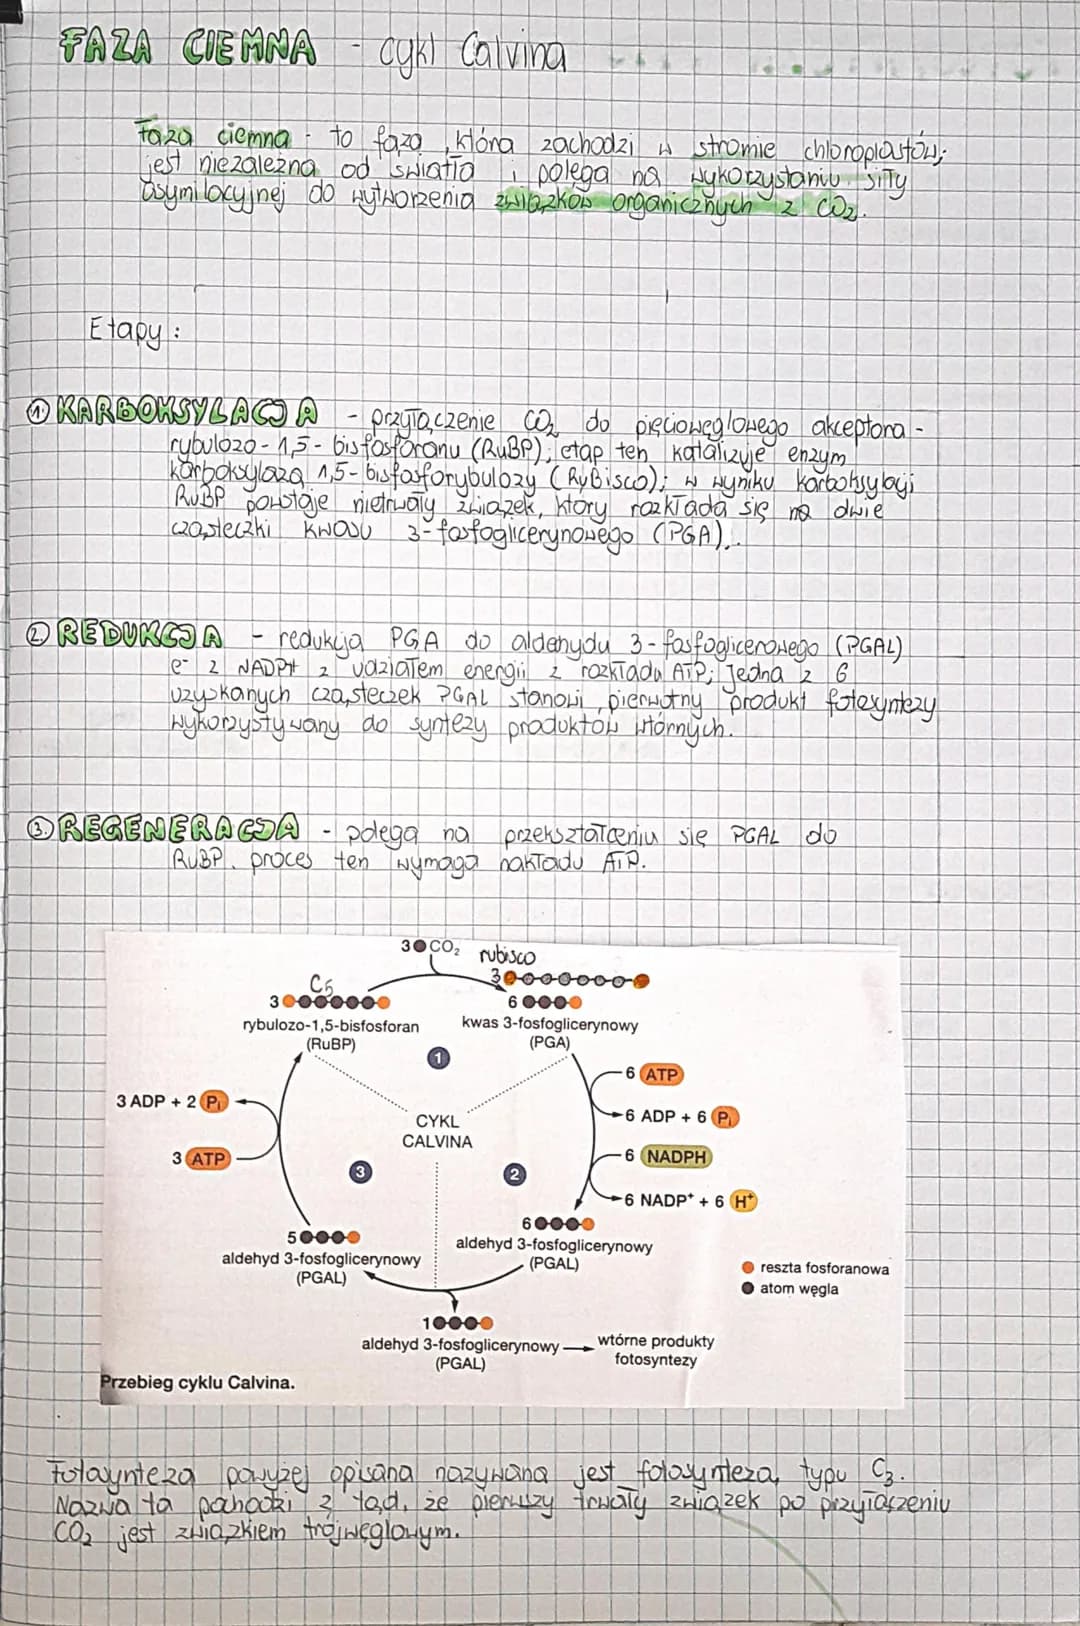 FAZA CIEMNA - cykl Calvina
Faza ciemna - to faza, która zachodzi w stromie chloroplastów;
jest niezależna od światła i polega na wykorzystaniu siły
asymilacyjnej do wytworzenia związków organicznych z CO₂.
Etapy:
1. KARBOKSYLACJA - przyłączenie CO₂ do pięciowęglowego akceptora -
rybulozo-1,5-bisfosforanu (RuBP); etap ten katalizuje enzym
karboksylaza 1,5-bisfosforybulozy (RyBisco); w wyniku karboksylacji
RuBP powstaje nietrwały związek, który rozkłada się na dwie
cząsteczki kwasu 3-fosfoglicerynowego (PGA).
2. REDUKCJA - redukcja PGA do aldehydu 3-fosfoglicerowego (PGAL)
e⁻ z NADPH z udziałem energii z rozkładu ATP; Jedna z 6
uzyskanych cząsteczek PGAL stanowi pierwotny produkt fotosyntezy
wykorzystywany do syntezy produktów wtórnych.
3. REGENERACJA - polega na przekształceniu się PGAL do
RuBP. proces ten wymaga nakładu ATP.
3 CO₂ rubisco
C5 3
3 6
rybulozo-1,5-bisfosforan kwas 3-fosfoglicerynowy
(RuBP) (PGA)
1
6 ATP
3 ADP + 2 Pi 6 ADP + 6 Pi
CYKL
CALVINA
3 ATP 6 NADPH
3 2
6 NADP⁺ + 6 H⁺
5 6
aldehyd 3-fosfoglicerynowy aldehyd 3-fosfoglicerynowy
(PGAL) (PGAL)
reszta fosforanowa
atom węgla
1
aldehyd 3-fosfoglicerynowy wtórne produkty
(PGAL) fotosyntezy
Przebieg cyklu Calvina.
Fotosynteza powyżej opisana nazywana jest fotosyntezą typu C₃.
Nazwa ta pochodzi z tąd, że pierwszy trwały związek po przyłączeniu
CO₂ jest związkiem trójwęglowym.